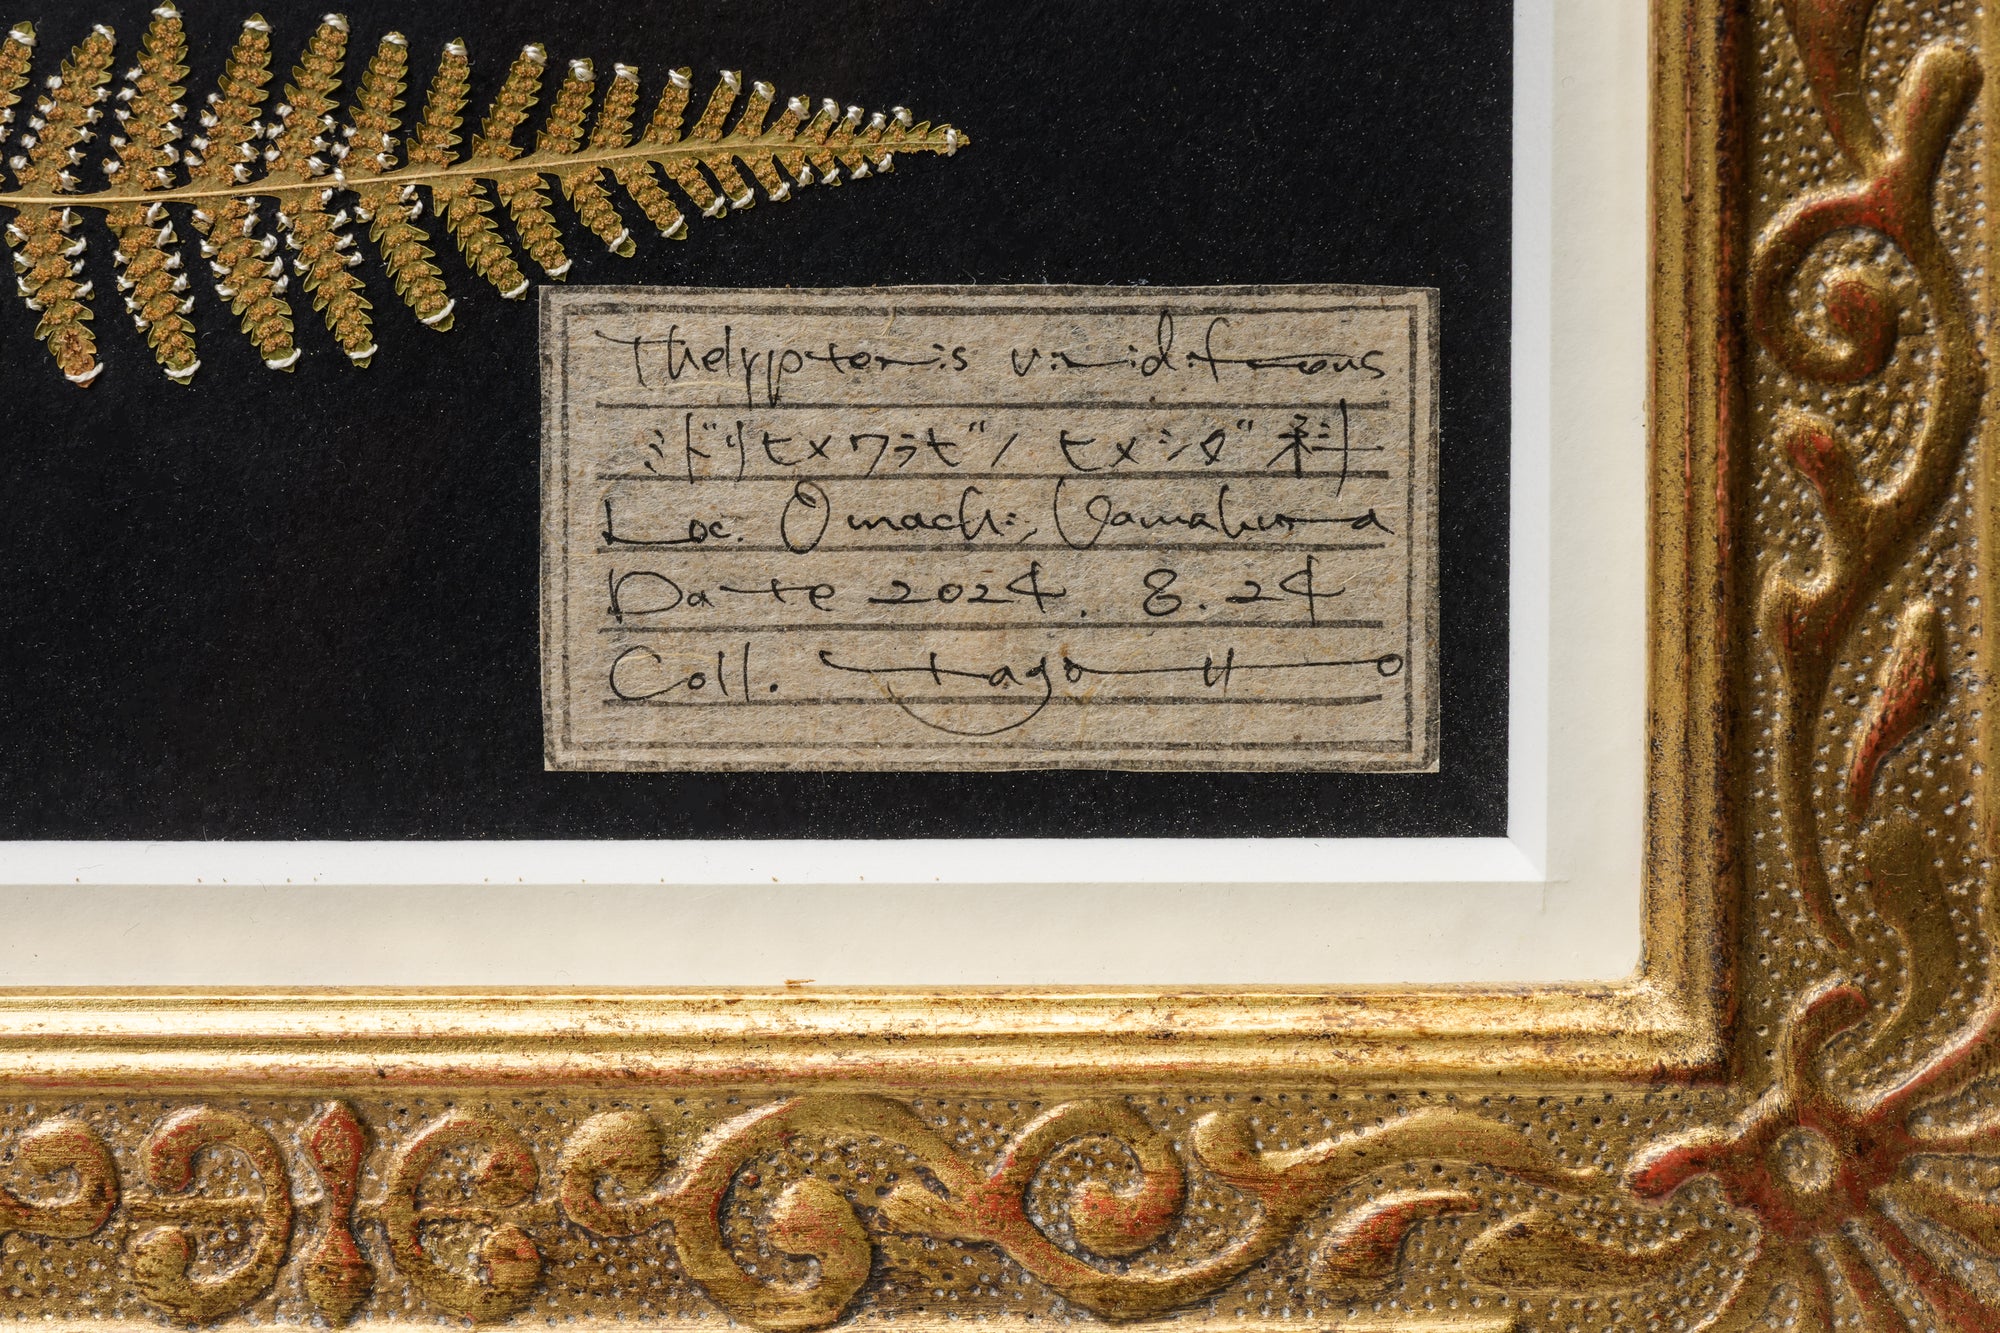 Thelypteris viridifrons
ミドリヒメワラビ/ヒメシダ科
Loc. Omachi, Kamakura
Date 2024. 8. 24
Coll.